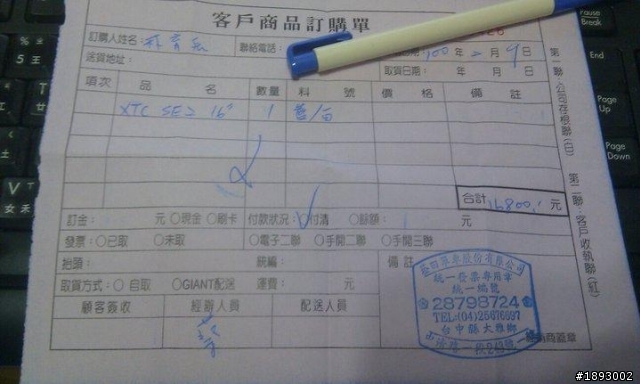 客戶商品訂購單
訂購人姓名：
聯絡電話：
100 年 二 月 9 日
送貨地址：
取貨日期： 年 月 日
項次 品 名 數量 料 號 價 格 備 註
XTC SE2 16" 1 藍/白
合計 16800 元
訂金： 元 ○現金 ○刷卡 付款狀況：付清 ○餘額： 元
發票：○已取 ○未取 ○電子二聯 ○手開二聯 ○手開三聯
抬頭： 統編： 備註
取貨方式：○自取 ○GIANT配送 運費： 元
顧客簽收 經辦人員 配送人員
第一聯：公司存根聯(白) 第二聯：客戶收執聯(紅)
統一發票專用章
統一編號
28798724
台中縣大雅鄉
商蓋章
Pause
Break
Page
Up
Page
Down
5
V
女
#1893002